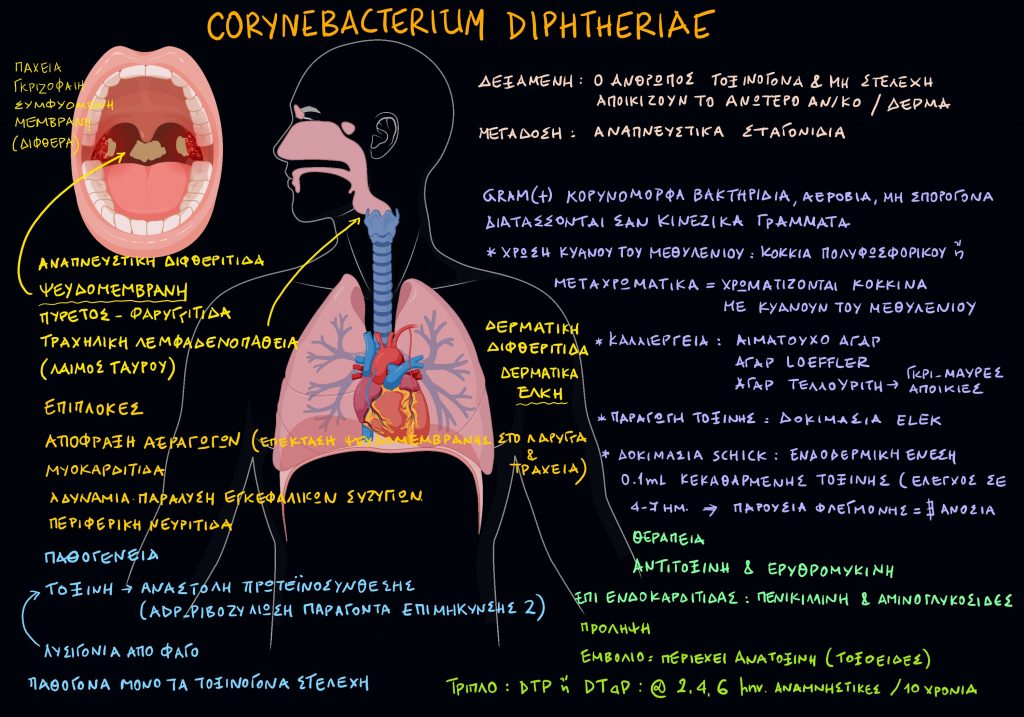 CORYNEBACTERIUM DIPHTHERIAE
ΠΑΧΕΙΑ
ΓΚΡΙΖΟΦΑΙΗ
ΣΥΜΦΥΟΜΕΝΗ
ΜΕΜΒΡΑΝΗ
(ΔΙΦΘΕΡΑ)
ΑΝΑΠΝΕΥΣΤΙΚΗ ΔΙΦΘΕΡΙΤΙΔΑ
ΨΕΥΔΟΜΕΜΒΡΑΝΗ
ΠΥΡΕΤΟΣ - ΦΑΡΥΓΓΙΤΙΔΑ
ΤΡΑΧΗΛΙΚΗ ΛΕΜΦΑΔΕΝΟΠΑΘΕΙΑ
(ΛΑΙΜΟΣ ΤΑΥΡΟΥ)
ΕΠΙΠΛΟΚΕΣ
ΑΠΟΦΡΑΞΗ ΑΕΡΑΓΩΓΩΝ (ΕΠΕΚΤΑΣΗ ΨΕΥΔΟΜΕΜΒΡΑΝΗΣ ΣΤΟ ΛΑΡΥΓΓΑ
&
ΤΡΑΧΕΙΑ)
ΜΥΟΚΑΡΔΙΤΙΔΑ
ΑΔΥΝΑΜΙΑ. ΠΑΡΑΛΥΣΗ ΕΓΚΕΦΑΛΙΚΩΝ ΣΥΖΥΓΙΩΝ
ΠΕΡΙΦΕΡΙΚΗ ΝΕΥΡΙΤΙΔΑ
ΠΑΘΟΓΕΝΕΙΑ
ΤΟΞΙΝΗ → ΑΝΑΣΤΟΛΗ ΠΡΩΤΕΪΝΟΣΥΝΘΕΣΗΣ
(ADP-ΡΙΒΟΖΥΛΙΩΣΗ ΠΑΡΑΓΟΝΤΑ ΕΠΙΜΗΚΥΝΣΗΣ 2)
ΛΥΣΙΓΟΝΙΑ ΑΠΟ ΦΑΓΟ
ΠΑΘΟΓΟΝΑ ΜΟΝΟ ΤΑ ΤΟΞΙΝΟΓΟΝΑ ΣΤΕΛΕΧΗ
ΔΕΡΜΑΤΙΚΗ
ΔΙΦΘΕΡΙΤΙΔΑ
ΔΕΡΜΑΤΙΚΑ
ΕΛΚΗ
ΔΕΞΑΜΕΝΗ : Ο ΑΝΘΡΩΠΟΣ ΤΟΞΙΝΟΓΟΝΑ & ΜΗ ΣΤΕΛΕΧΗ
ΑΠΟΙΚΙΖΟΥΝ ΤΟ ΑΝΩΤΕΡΟ ΑΝ/ΚΟ / ΔΕΡΜΑ
ΜΕΤΑΔΟΣΗ : ΑΝΑΠΝΕΥΣΤΙΚΑ ΣΤΑΓΟΝΙΔΙΑ
GRAM(+) ΚΟΡΥΝΟΜΟΡΦΑ ΒΑΚΤΗΡΙΔΙΑ, ΑΕΡΟΒΙΑ, ΜΗ ΣΠΟΡΟΓΟΝΑ
ΔΙΑΤΑΣΣΟΝΤΑΙ ΣΑΝ ΚΙΝΕΖΙΚΑ ΓΡΑΜΜΑΤΑ
* ΧΡΩΣΗ ΚΥΑΝΟΥ ΤΟΥ ΜΕΘΥΛΕΝΙΟΥ : ΚΟΚΚΙΑ ΠΟΛΥΦΩΣΦΟΡΙΚΟΥ ή
ΜΕΤΑΧΡΩΜΑΤΙΚΑ = ΧΡΩΜΑΤΙΖΟΝΤΑΙ ΚΟΚΚΙΝΑ
ΜΕ ΚΥΑΝΟΥΝ ΤΟΥ ΜΕΘΥΛΕΝΙΟΥ
* ΚΑΛΛΙΕΡΓΕΙΑ : ΑΙΜΑΤΟΥΧΟ ΑΓΑΡ
ΑΓΑΡ LOEFFLER
ΑΓΑΡ ΤΕΛΛΟΥΡΙΤΗ → ΓΚΡΙ-ΜΑΥΡΕΣ
ΑΠΟΙΚΙΕΣ
* ΠΑΡΑΓΩΓΗ ΤΟΞΙΝΗΣ : ΔΟΚΙΜΑΣΙΑ ELEK
* ΔΟΚΙΜΑΣΙΑ SCHICK : ΕΝΔΟΔΕΡΜΙΚΗ ΕΝΕΣΗ
0.1mL ΚΕΚΑΘΑΡΜΕΝΗΣ ΤΟΞΙΝΗΣ (ΕΛΕΓΧΟΣ ΣΕ
4-7 ΗΜ. → ΠΑΡΟΥΣΙΑ ΦΛΕΓΜΟΝΗΣ = ∄ ΑΝΟΣΙΑ
ΘΕΡΑΠΕΙΑ
ΑΝΤΙΤΟΞΙΝΗ & ΕΡΥΘΡΟΜΥΚΙΝΗ
ΕΠΙ ΕΝΔΟΚΑΡΔΙΤΙΔΑΣ : ΠΕΝΙΚΙΛΙΝΗ & ΑΜΙΝΟΓΛΥΚΟΣΙΔΕΣ
ΠΡΟΛΗΨΗ
ΕΜΒΟΛΙΟ : ΠΕΡΙΕΧΕΙ ΑΝΑΤΟΞΙΝΗ (ΤΟΞΟΕΙΔΕΣ)
ΤΡΙΠΛΟ : DTP ή DTaP : @ 2, 4, 6 μην. ΑΝΑΜΝΗΣΤΙΚΕΣ / 10 ΧΡΟΝΙΑ